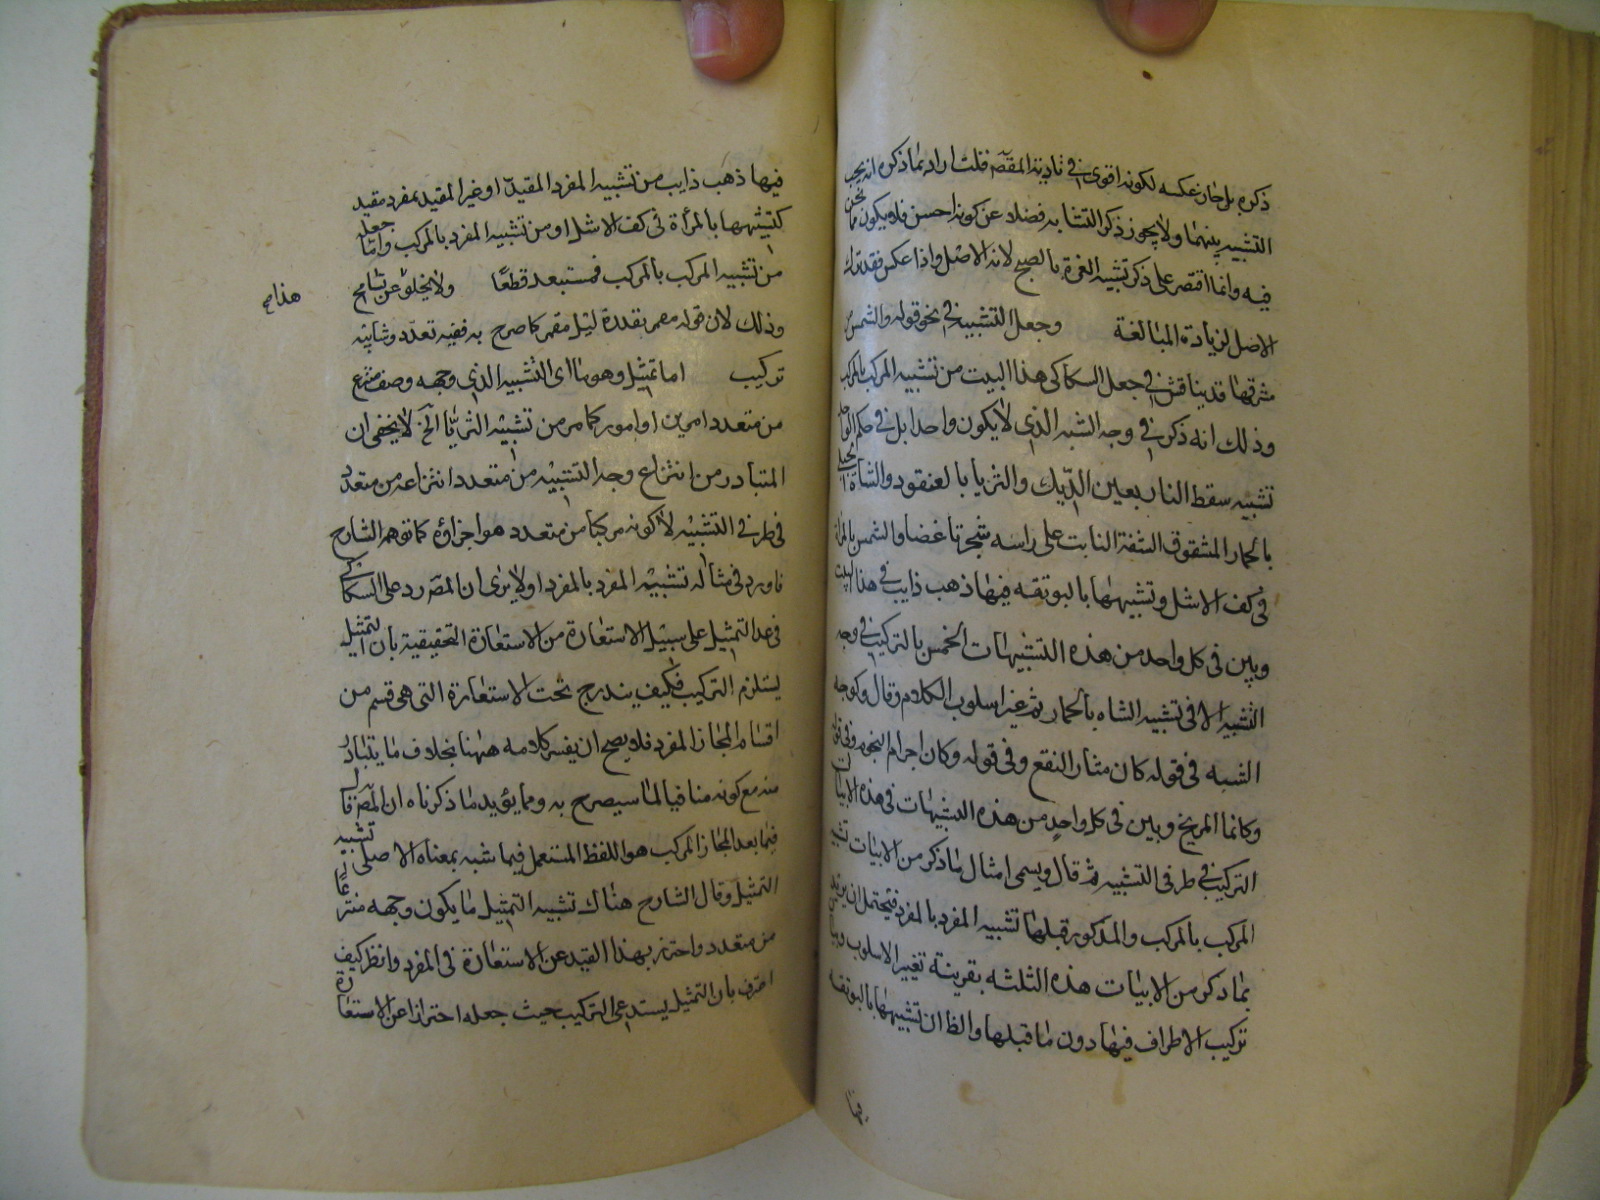 ذكره بل جاز عكسه لكونه اقوى في تادية المقصد قلت اراد بما ذكره انه يجب
التشبيه بينهما ولا يجوز ذكر التشابه فضلا عن كونه احسن فلا يكون مما نحن
فيه وانما اقتصر على ذكر تشبيه الغرة بالصبح لانه الاصل واذا عكس فقد ترك
الاصل لزيادة المبالغة وجعل التشبيه في نحو قوله والشمس من
مشرقها قد يناقش في جعل السكاكى هذا البيت من تشبيه المركب بالمركب
وذلك انه ذكر في وجه الشبه الذي لا يكون واحدا بل في حكم الواحد
تشبيه سقط النار بعين الديك والثريا بالعنقود والشاة الجبلي
بالحمار المشقوق الشفة النابت على راسه شجرتا غضا والشمس بالمرآة
في كف الاشل وتشبيهها بالبوتقه فيها ذهب ذايب في هذا البيت
وبين في كل واحد من هذه التشبيهات الخمس بالتركيب في وجه
التشبيه الا في تشبيه الشاه بالحمار ثم غير اسلوب الكلام وقال وكوجه
الشبه في قوله كان مثار النقع وفي قوله وكان اجرام النجوم وفي قوله
وكانما المريخ وبين في كل واحد من هذه التشبيهات في هذه الابيات
التركيب في طرفى التشبيه ثم قال ويسمى امثال ما ذكر من الابيات تشبيه
المركب بالمركب والمذكور قبلها تشبيه المفرد بالمفرد فيحتمل ان يريد
بما ذكر من الابيات هذه الثلثه بقرينة تغيير الاسلوب وبيان
تركيب الاطراف فيها دون ما قبلها والظ ان تشبيهها بالبوتقه
فيها
فيها ذهب ذايب من تشبيه المفرد المقيد او غير المقيد بمفرد مقيد
كتشبيهها بالمرأة في كف الاشل او من تشبيه المفرد بالمركب واما جعله
من تشبيه المركب بالمركب فمستبعد قطعًا ولا يخلو عن تسامح
هذا
وذلك لان قوله معمر بقددة ليل مقمر كما صرح به ففيه تعدد وشايبة
تركيب اما تمثيل وهو ما اى التشبيه الذي وجهه وصف منتزع
من متعدد امرين او امور كما مر من تشبيه الثريا الخ لا يخفى ان
المتبادر من انتزاع وجه التشبيه من متعدد انتزاعه من متعدد
في طرفي التشبيه لا كونه مركبا من متعدد هو اجزاؤه كما توهم الشارح
فاورد في مثاله تشبيه المفرد بالمفرد اولا يرى ان المص رد على السكاكي
في عد التمثيل على سبيل الاستعارة من الاستعارة التحقيقية بان التمثيل
يستلزم التركيب فكيف يندرج تحت الاستعارة التى هى قسم من
اقسام المجاز المفرد فلا يصح ان يفسر كلامه ههنا بخلاف ما يتبادر
منه مع كونه منافيا لما سيصرح به ومما يؤيد ما ذكرناه ان المص قال
فيما بعد المجاز المركب هو اللفظ المستعمل فيما شبه بمعناه الاصلى تشبيه
التمثيل وقال الشارح هناك تشبيه التمثيل ما يكون وجهه منتزعًا
من متعدد واحترز بهذا القيد عن الاستعارة في المفرد وانظر كيف
اعترف بان التمثيل يستدعى التركيب حيث جعله احترازا عن الاستعارة